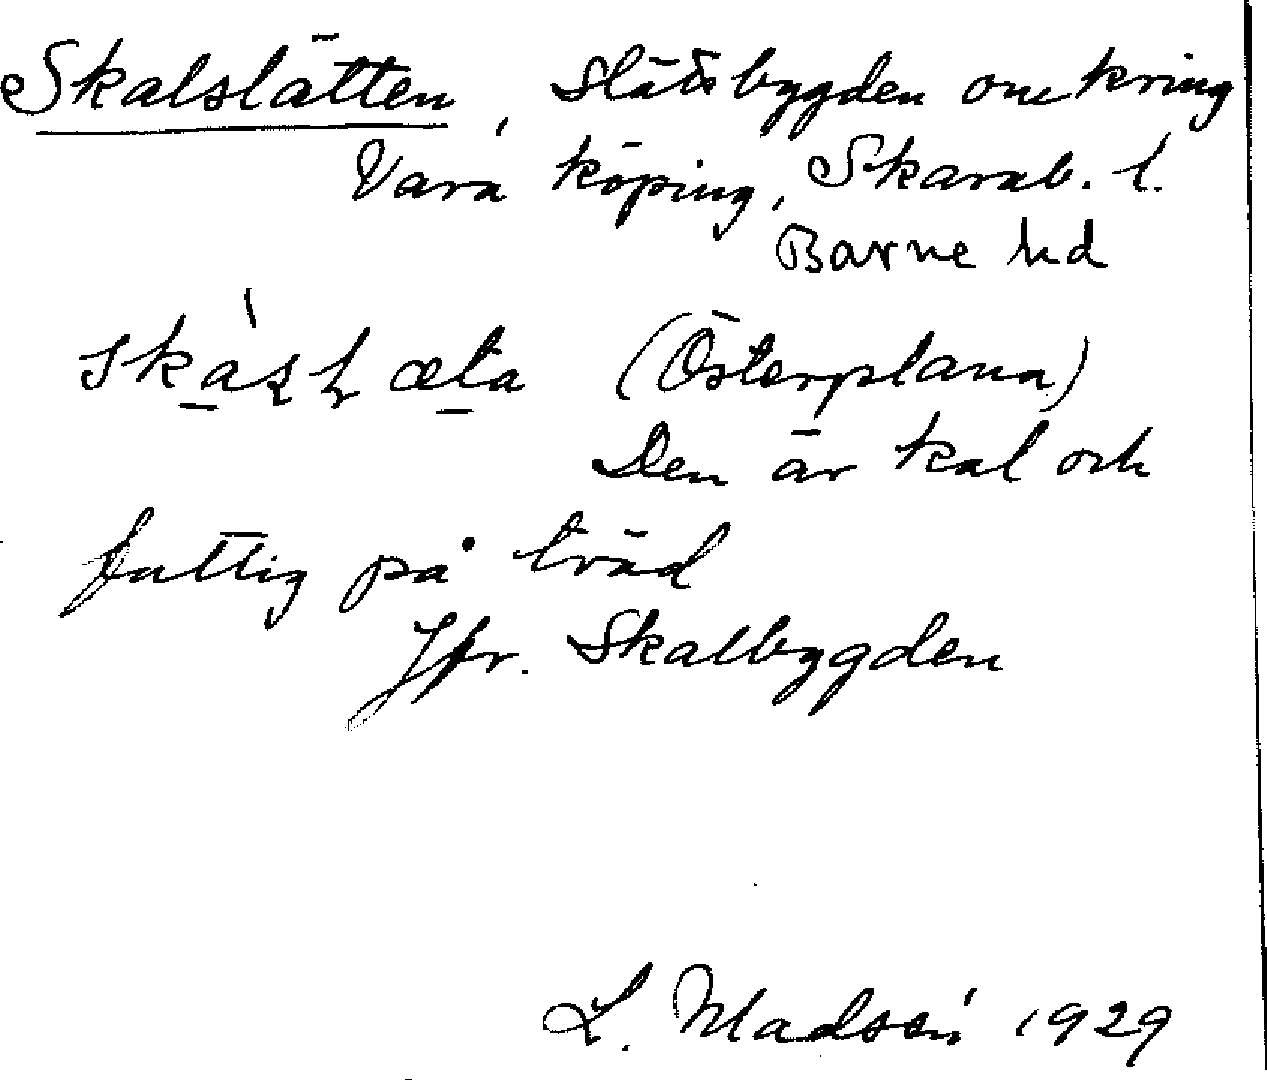 Skalslätten, Slättbygden omkring
Vara köping, Skarab. l.
Barne hd
(Österplana)
Den är kal och
fattig på träd
Jfr. Skalbygden
L. Madsén 1929